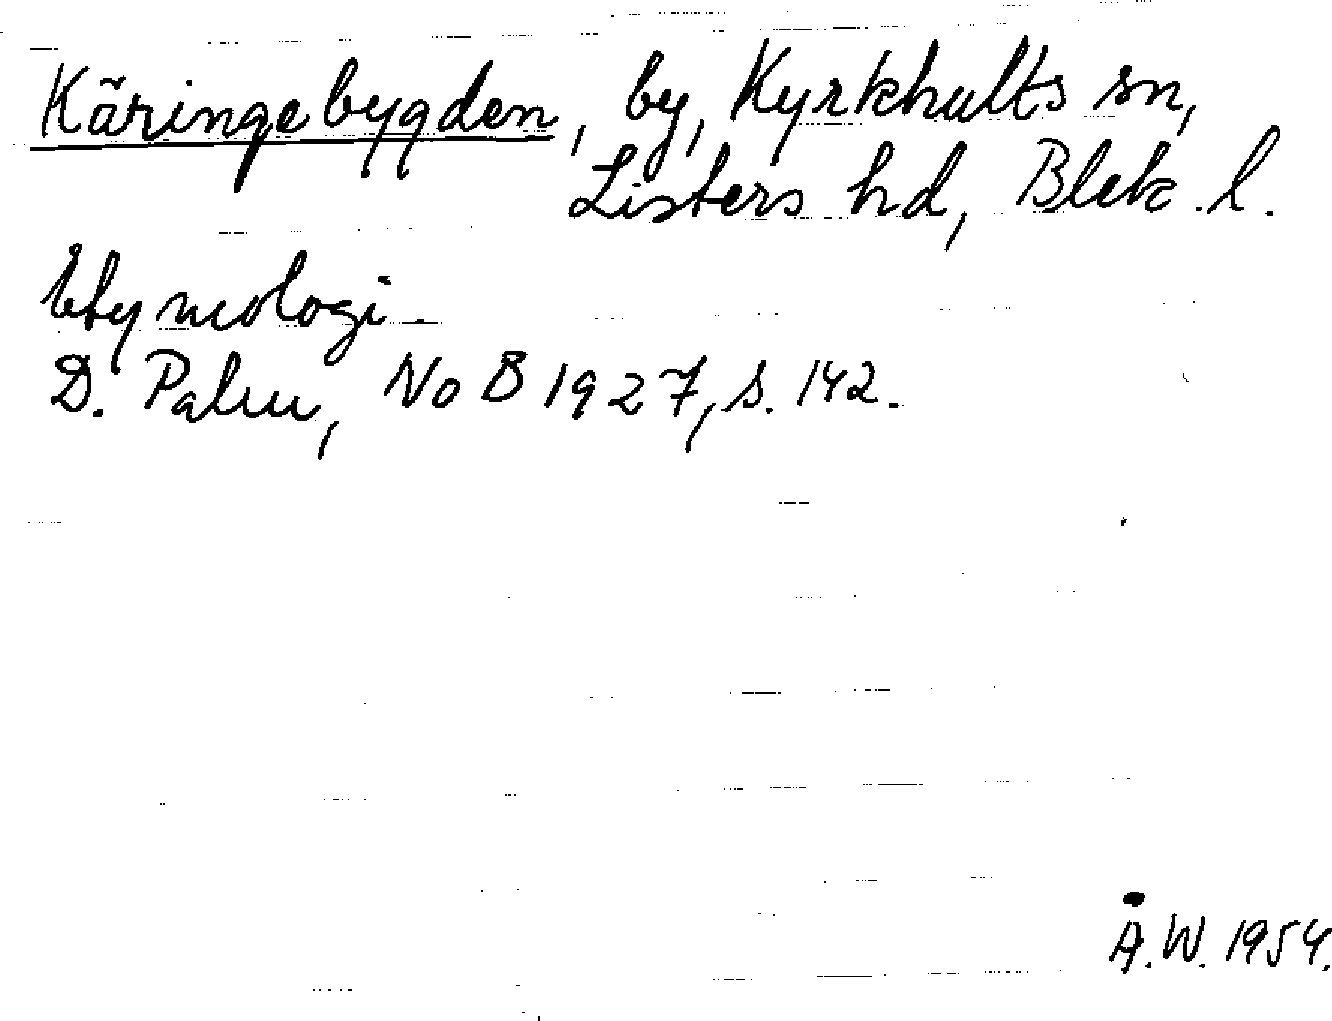 Käringebygden, by, Kyrkhults sn,
Listers hd, Blek. l.
Etymologi.
D. Palm, NoB 1927, s. 142.
Å.W. 1954.